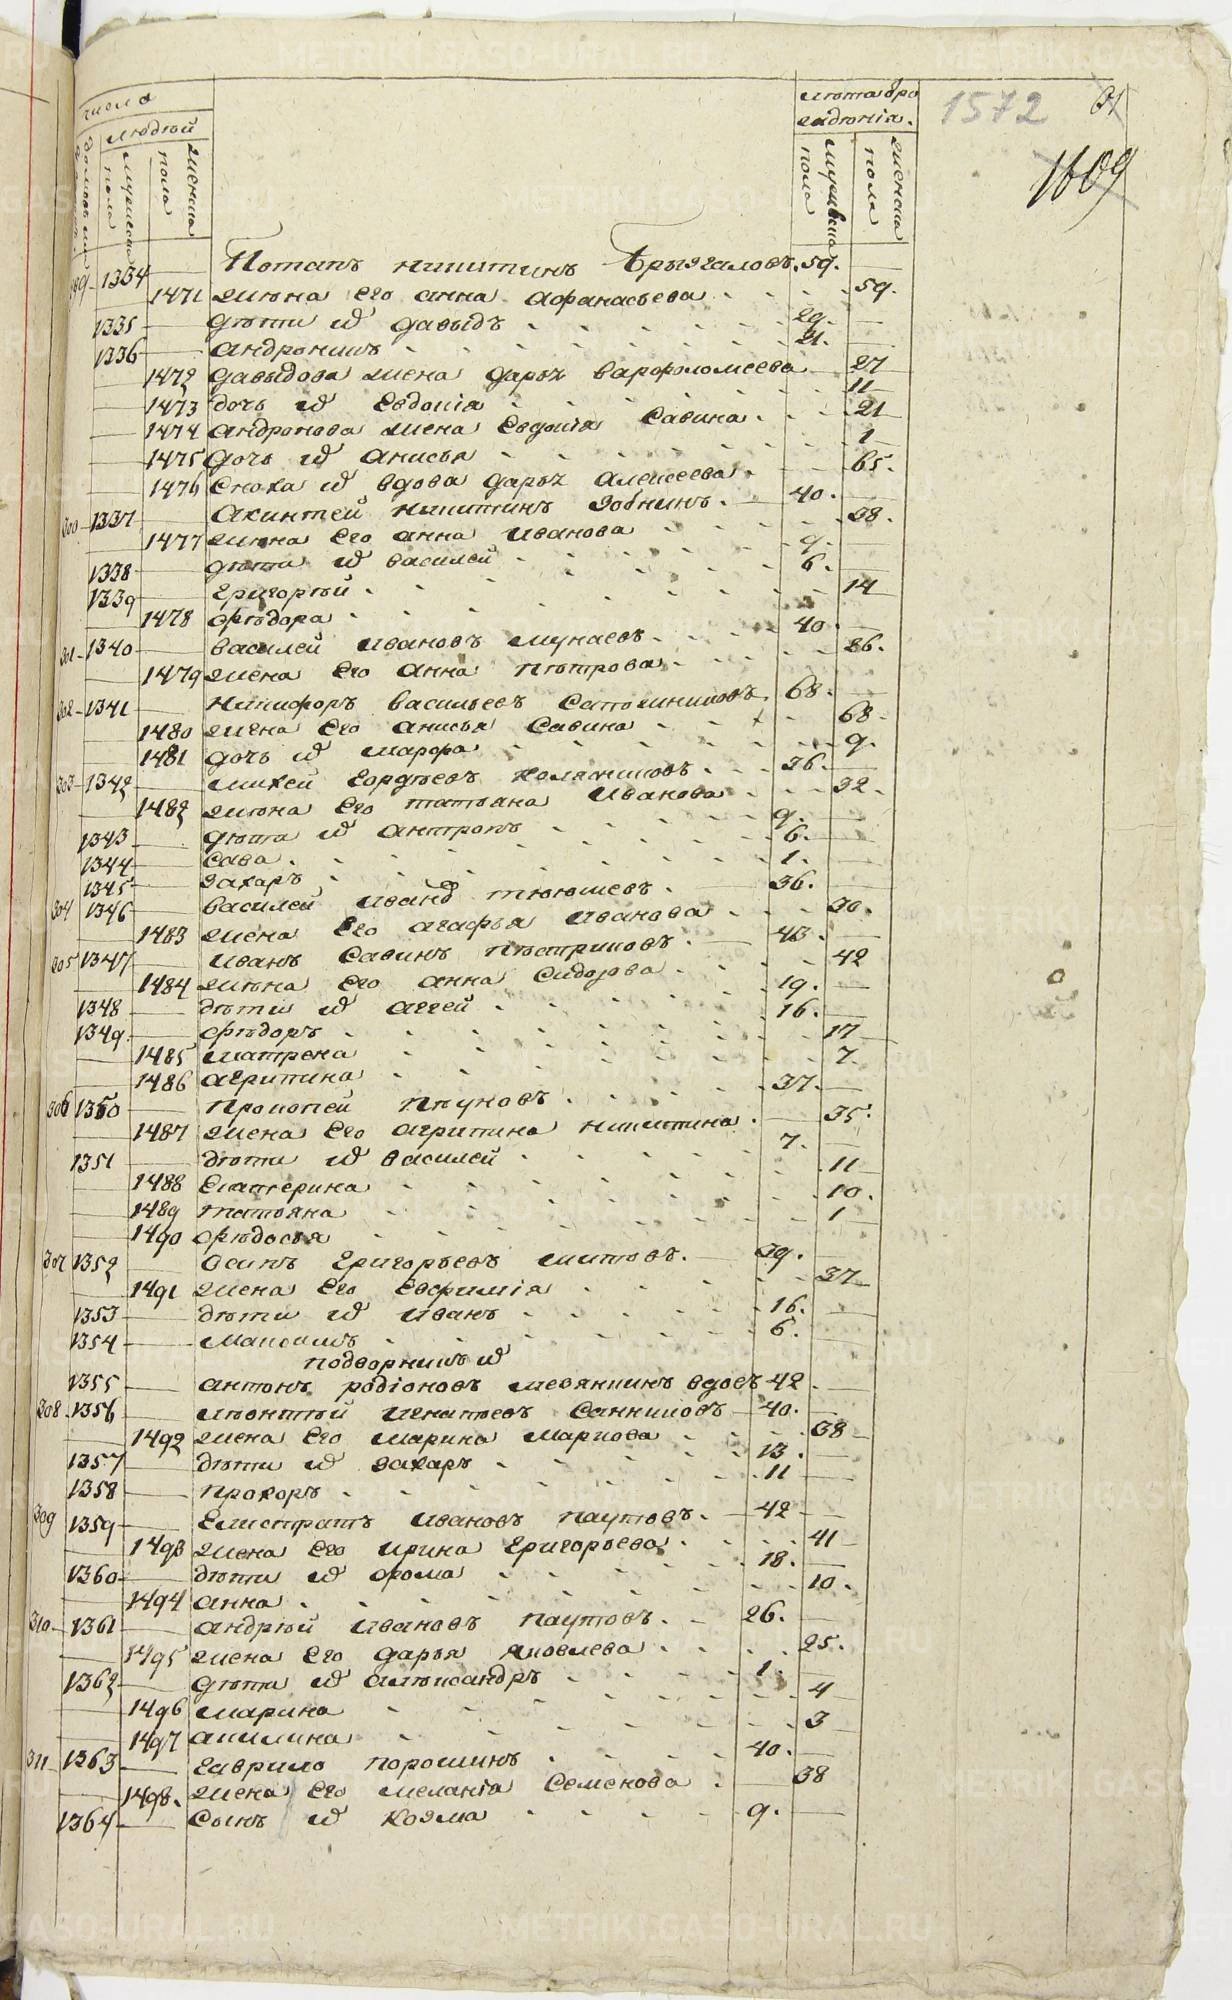 METRIKI.GASO-URAL.RU
числа
людѣй
мужеска пола
женска пола
лѣта
мужеска пола
женска пола
1572
1609
1334 Потапъ никитинъ Брызгаловъ. 59.
1471 жѣна Его анна афанасьева 59.
1335 дѣти и҃ давыдъ 29.
1336 андроникъ 21.
1472 давыдова жена дарья варфоломеева 27
1473 дочь и҃ Евдокія 11
1474 андронова жена Евдокія Савина 21
1475 дочь и҃ анисья 1
1476 Сноха и҃ вдова дарья алексеева 65.
300 1337 Акинтей никитинъ Зобнинъ 40.
1477 жѣна Его анна иванова 38.
1338 дѣти и҃ василей 9.
1339 григорѣй 6.
1478 фѣдора 14
301 1340 василей ивановъ мунаевъ 40.
1479 жена Его анна пѣтрова 26.
302 1341 никифоръ васильевъ 68.
1480 жена Его анисья Савина 68
1481 дочь и҃ марфа 9.
303 1342 михей гордѣевъ 36.
1482 жѣна Его татьяна иванова 32.
1343 дѣти и҃ антропъ 9.
1344 сава 6.
1345 захаръ 1.
304 1346 василей тююшевъ 36.
1483 жена Его агафья иванова 30.
305 1347 иванъ Савинъ пѣстриковъ 43.
1484 жѣна Его анна Сидорова 42
1348 дѣти и҃ аггей 19.
1349 фѣдоръ 16.
1485 матрена 17
1486 агрипина 7.
306 1350 прокопей 37.
1487 жена Его агрипина никитина 35.
1351 дѣти и҃ василей 7.
1488 Екатерина 11
1489 татьяна 10.
1490 фѣдосья 1
307 1352 осипъ григорьевъ шитовъ 39.
1491 жена Его Евфимія 37
1353 дѣти и҃ иванъ 16.
1354 максимъ 6.
подворникъ и҃
1355 антонъ родіоновъ мезянкинъ вдовъ 42
308 1356 лѣонтѣй игнатьевъ Санниковъ 40.
1492 жена Его марина маркова 38
1357 дѣти и҃ захаръ 13.
1358 прохоръ 11
309 1359 Елистратъ ивановъ паутовъ 42
1493 жена Его ирина григорьева 41
1360 дѣти и҃ фома 18.
1494 анна 10.
310 1361 андрѣй ивановъ паутовъ 26.
1495 жена Его дарья яковлева 25.
1362 дѣти и҃ алѣксандръ 1.
1496 марина 4
1497 акилина 3
311 1363 гаврило порошинъ 40.
1498 жена Его меланія Семенова 38
1364 Сынъ и҃ козма 9.
METRIKI.GASO-URAL.RU